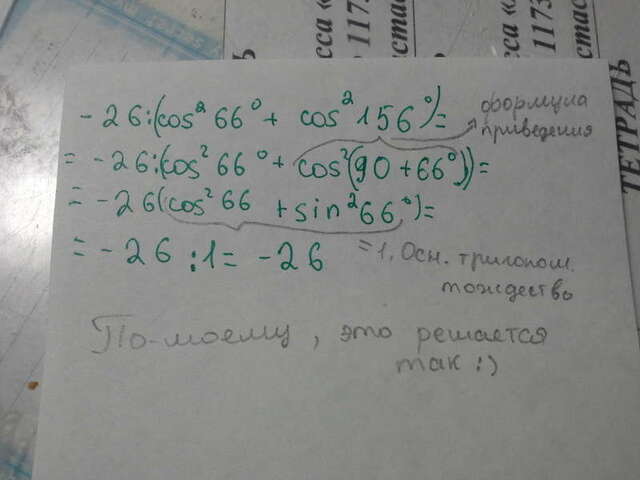 сса «
1173
стас
ТЕТРАДЬ
-26:(cos² 66° + cos² 156°)=
формула
приведения
= -26:(cos² 66° + cos²(90 + 66°))=
= -26(cos² 66 + sin² 66°)=
= -26 :1= -26
=1. Осн. тригоном.
тождество
По-моему, это решается
так :)